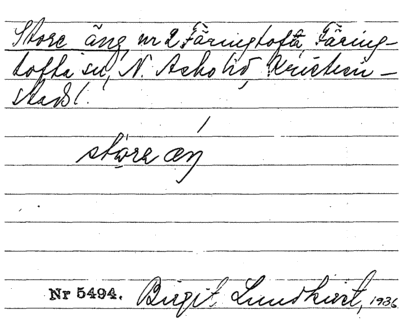 Store äng, nr 2 Färingtofta, Färing-
tofta sn, N. Asbo hd, Kristian-
stads l.
störa äŋ
Nr 5494. Birgit Lundkvist, 1936